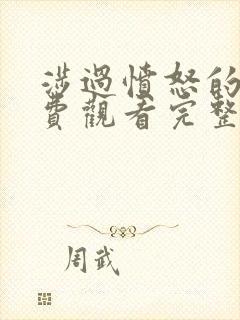 涉過憤怒的
費觀看完整
周武